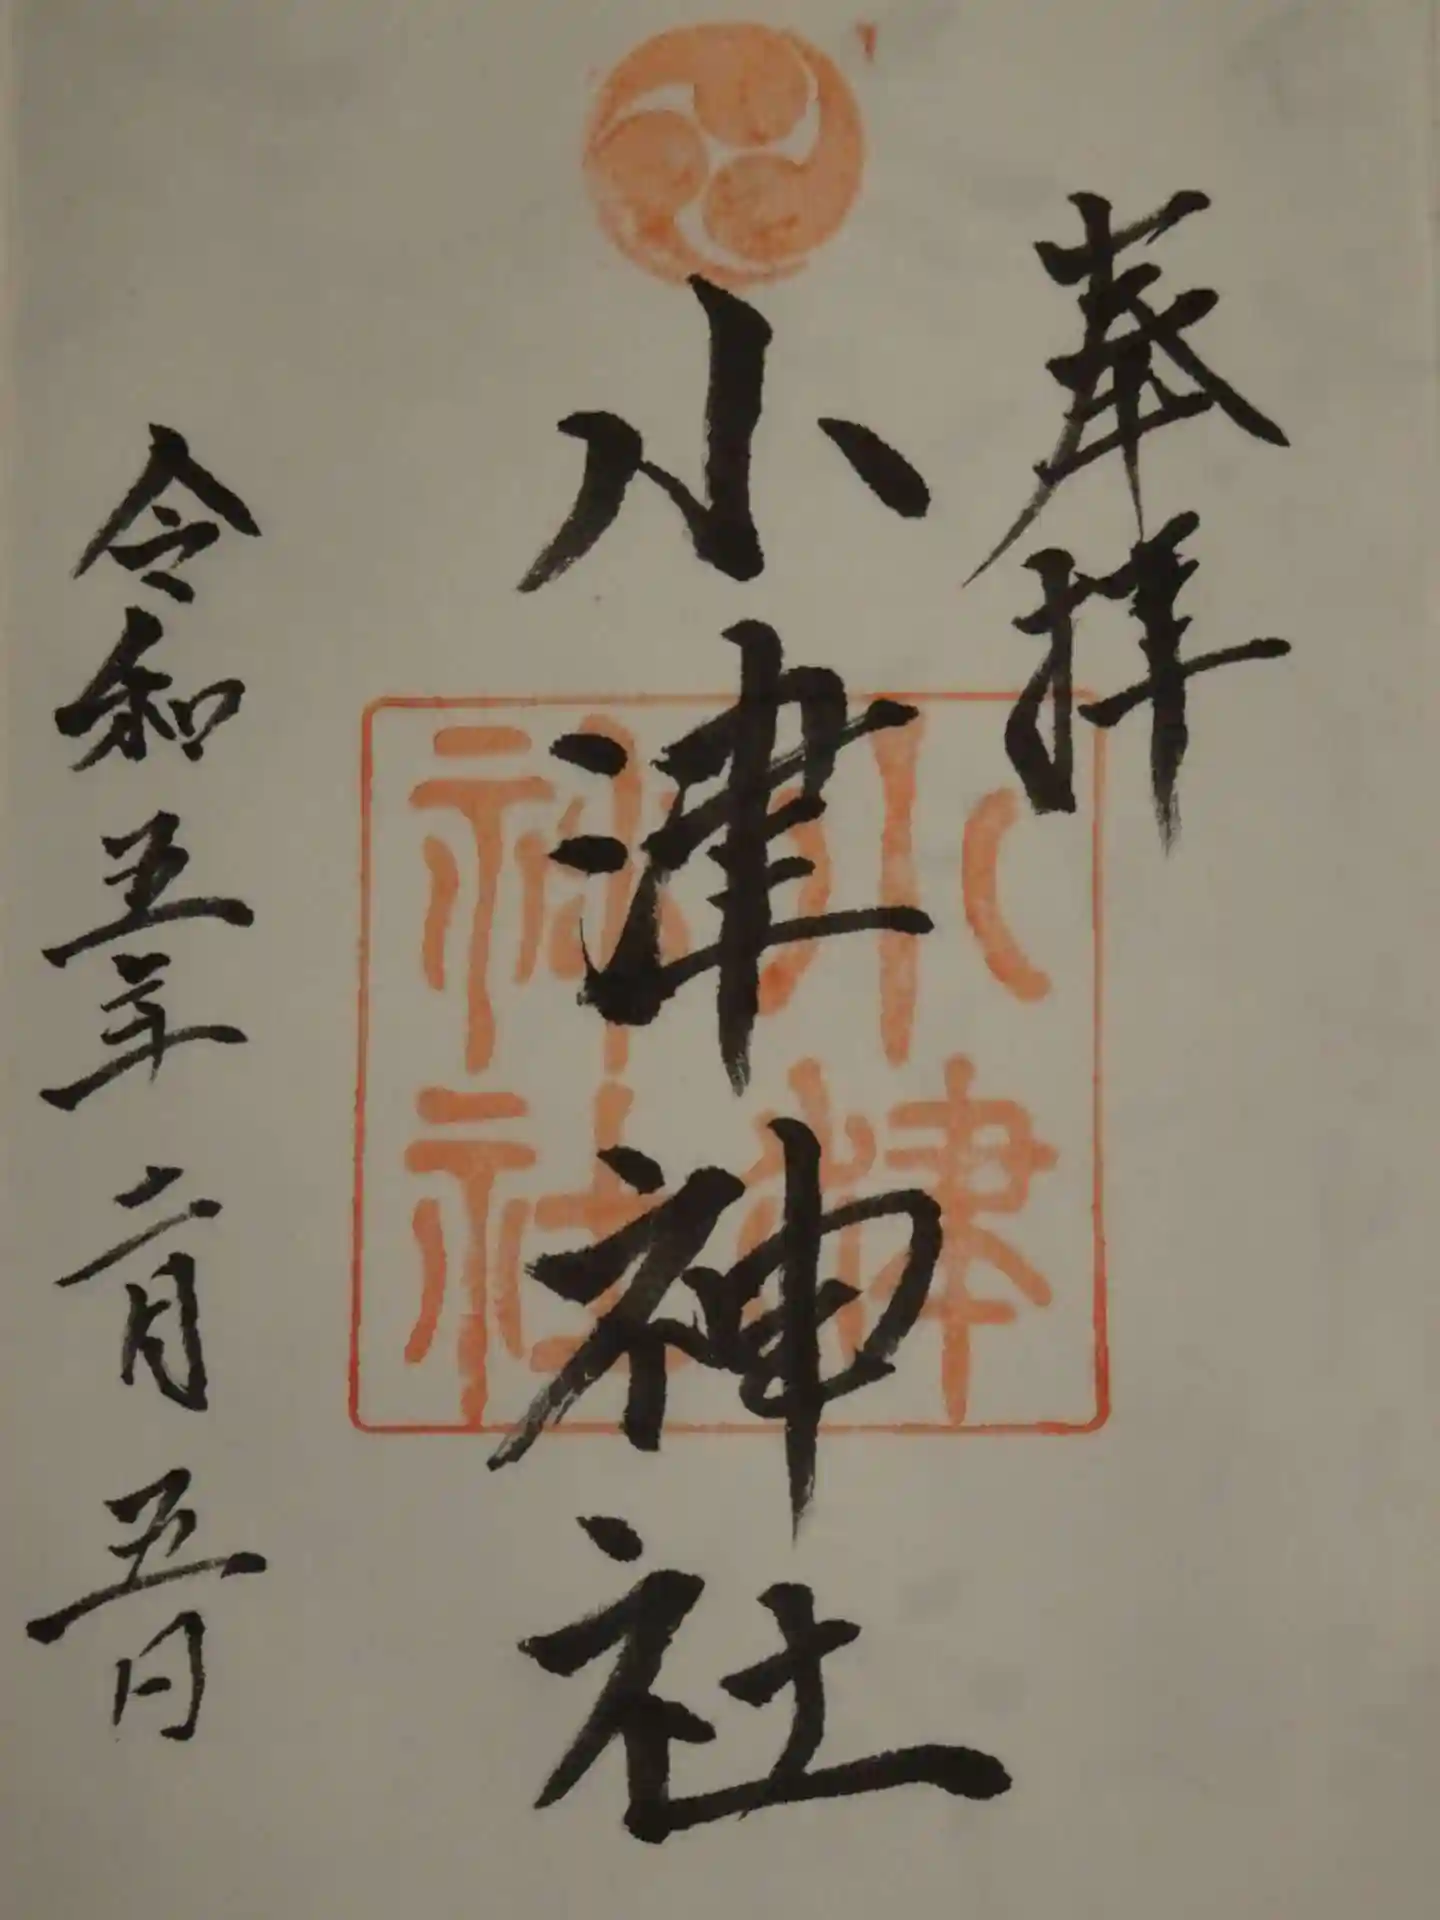 奉拝
小津神社
令和五年二月五日
小津
神社